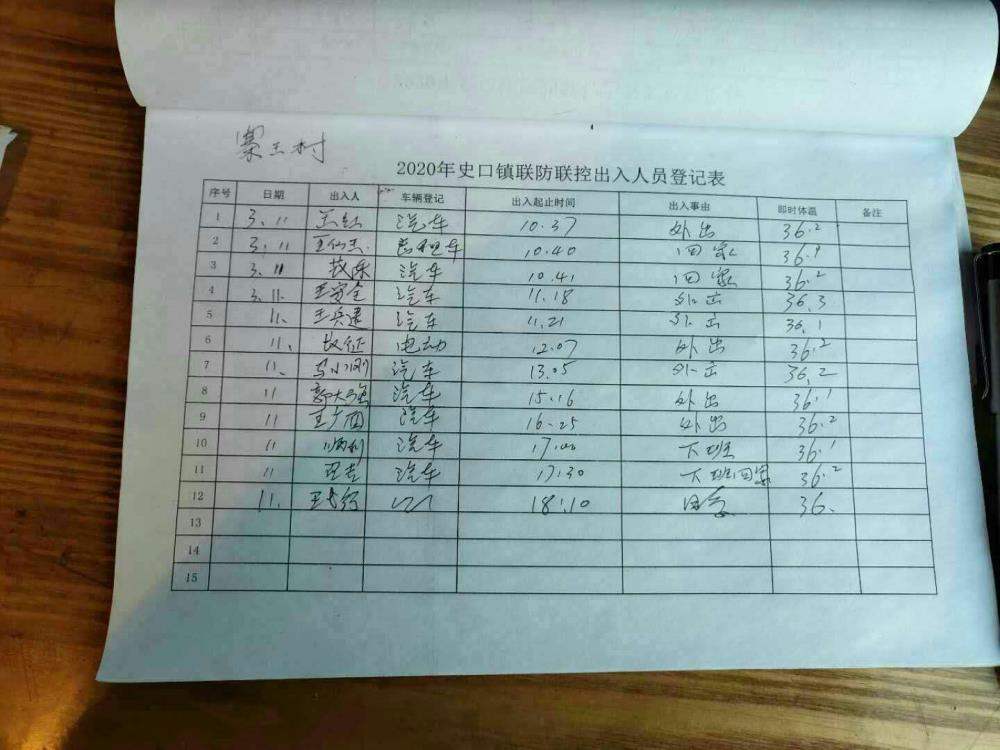 寨王村
2020年史口镇联防联控出入人员登记表
序号 日期 出入人 车辆登记 出入起止时间 出入事由 即时体温 备注
1 3.11 汽车 10.37 外出 36.2
2 3.11 10.40 回家 36.1
3 3.11 汽车 10.41 回家 36.2
4 3.11. 王安全 汽车 11.18 外出 36.3
5 11. 王兵建 汽车 11.21 外出 36.1
6 11. 电动 12.07 外出 36.2
7 11. 小刚 汽车 13.05 外出 36.2
8 11 郭大强 汽车 15.16 外出 36.1
9 11 汽车 16.25 外出 36.2
10 11 顺利 汽车 17.00 下班 36.1
11 11 汽车 17.30 下班回家 36.2
12 11. 18:10 36.
13
14
15